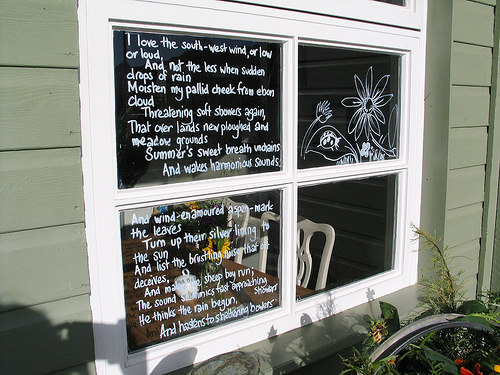 I love the south-west wind, or low
or loud,
And not the less when sudden
drops of rain
Moisten my pallid cheek from ebon
cloud
Threatening soft showers again,
That over lands new ploughed and
meadow grounds
Summer's sweet breath unchains
And wakes harmonious sounds.
And wind-enamoured aspen-mark
the leaves
Turn up their silver lining to
the sun
And list the brustling noise that oft
deceives,
And makes the sheep boy run;
The sound so mimics fast approaching
showers
He thinks the rain begun,
And hastens to sheltering bowers